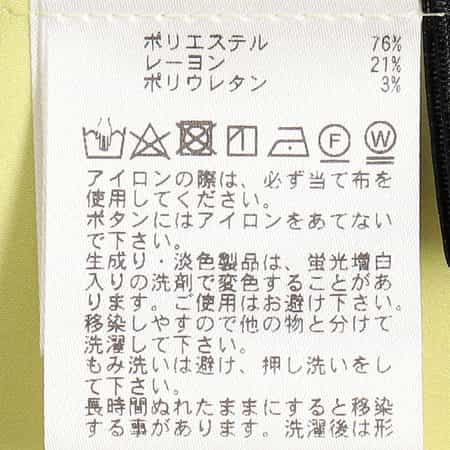 ポリエステル 76%
レーヨン 21%
ポリウレタン 3%
F W
アイロンの際は、必ず当て布を
使用してください。
ボタンにはアイロンをあてない
で下さい。
生成り・淡色製品は、蛍光増白
入りの洗剤で変色することがあ
ります。ご使用はお避け下さい。
移染しやすので他の物と分けて
洗濯して下さい。
もみ洗いは避け、押し洗いをし
て下さい。
長時間ぬれたままにすると移染
する事があります。洗濯後は形